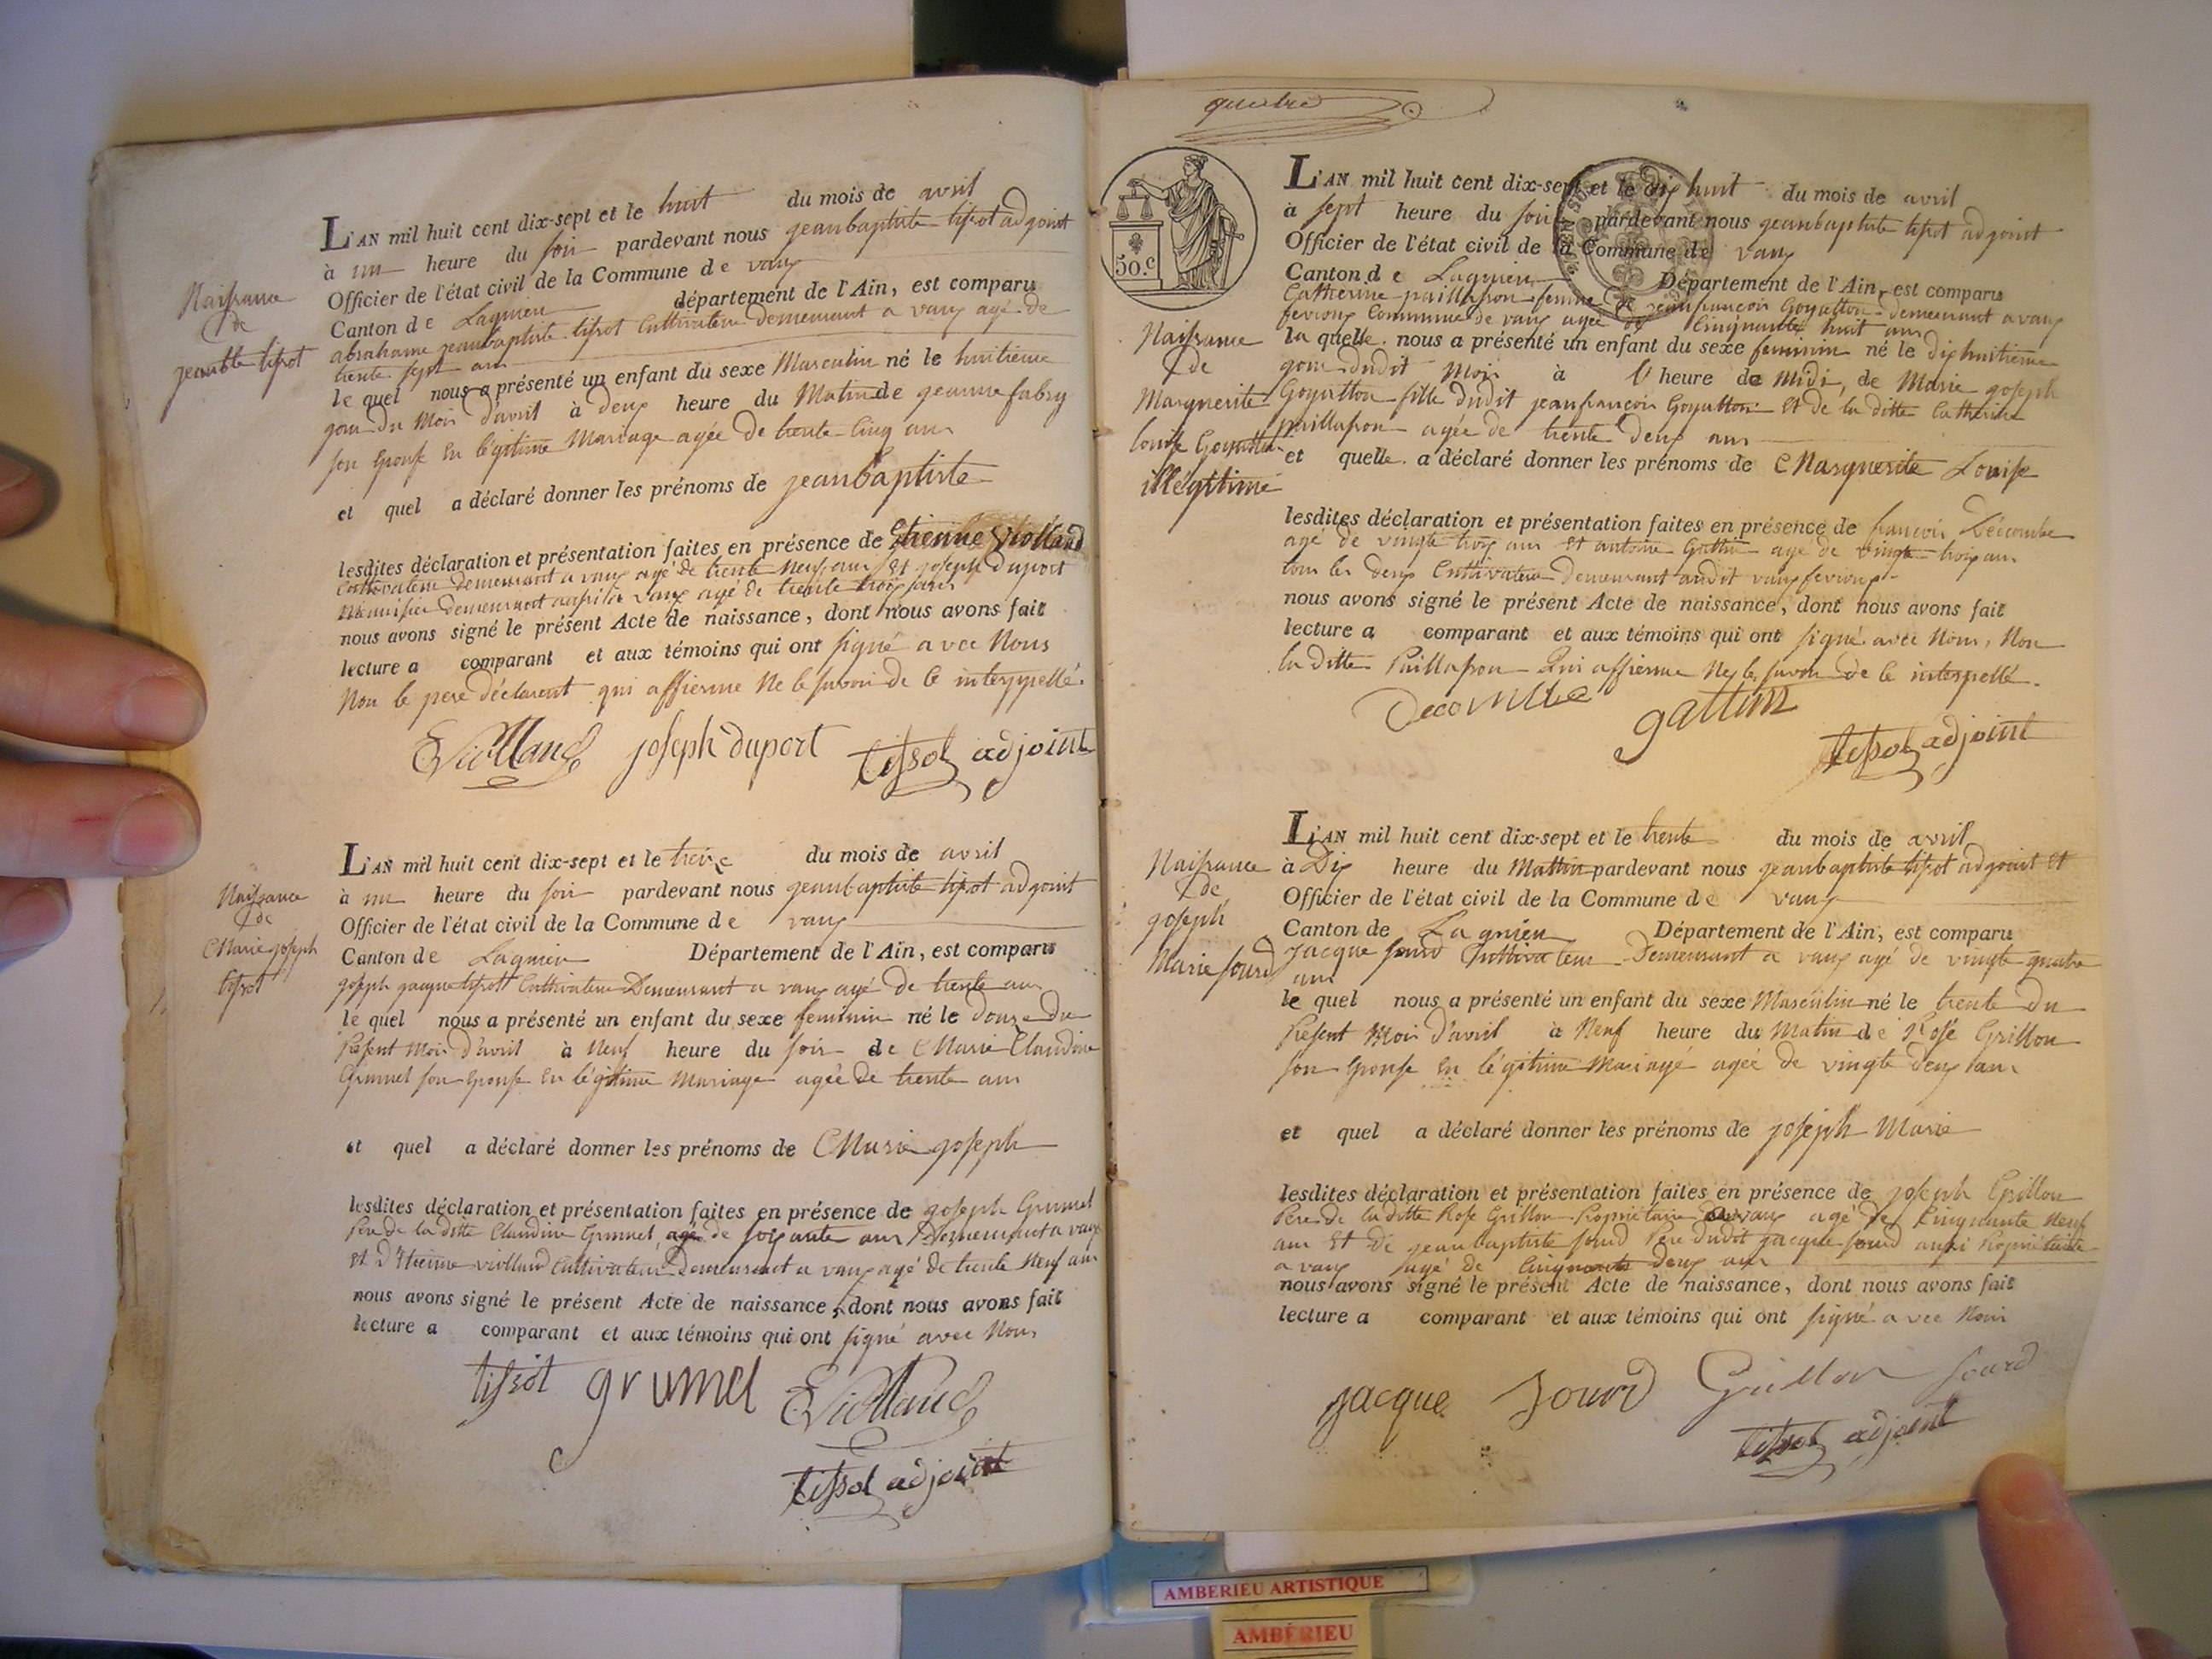 L'AN mil huit cent dix-sept et le huit du mois de avril
à un heure du soir pardevant nous jeanbaptiste tissot adjoint
Officier de l'état civil de la Commune de vaux
Canton de Lagnieu département de l'Ain, est comparu
abrahame jeanbaptiste tissot Cultivateur demeurant a vaux agé de
trente sept ans
le quel nous a présenté un enfant du sexe Masculin né le huitieme
jour du Mois d'avril à deux heure du Matin de jeanne fabry
son Epouse en légitime Mariage agée de trente Cinq ans
et quel a déclaré donner les prénoms de jeanbaptiste
lesdites déclaration et présentation faites en présence de Etienne Violland
Cultivateur demeurant a vaux agé de trente neuf ans Et joseph duport
Menuisier demeurant aussi a vaux agé de trente trois ans
nous avons signé le présent Acte de naissance, dont nous avons fait
lecture a comparant et aux témoins qui ont signé avec Nous
Non le pere déclarent qui affierme Ne le savoir de ce interppellé.
EViolland joseph duport tissot adjoint
Naissance
de
jeanbte tissot
L'AN mil huit cent dix-sept et le treize du mois de avril
à un heure du soir pardevant nous jeanbaptiste tissot adjoint
Officier de l'état civil de la Commune de vaux
Canton de Lagnieu Département de l'Ain, est comparu
joseph jacque tissot Cultivateur Demeurant a vaux agé de trente ans
le quel nous a présenté un enfant du sexe feminin né le douze du
Present Mois d'avril à Neuf heure du soir de Marie Claudine
Grumel son Epouse en légitime Mariage agée de trente ans
et quel a déclaré donner les prénoms de Marie joseph
lesdites déclaration et présentation faites en présence de joseph Grumel
Pere de la ditte Claudine Grumel, agé de soixante ans Demeurant a vaux
et d'Etienne violland Cultivateur Demeurant a vaux agé de trente Neuf ans
nous avons signé le présent Acte de naissance, dont nous avons fait
lecture a comparant et aux témoins qui ont signé avec Nous
tissot grumel EViolland
tissot adjoint
Naissance
de
Marie joseph
tissot
quatre
50.c
L'AN mil huit cent dix-sept et le dix huit du mois de avril
à sept heure du soir pardevant nous jeanbaptiste tissot adjoint
Officier de l'état civil de la Commune de vaux
Canton de Lagnieu Département de l'Ain, est comparu
Catherine paillasson femme de jeanfrançois Goyatton demeurant a vaux
fevroux Commune de vaux agée de Cinquante huit ans
la quelle nous a présenté un enfant du sexe feminin né le dixhuitieme
jour dudit Mois à l'heure de Midi, de Marie joseph
Goyatton fille dudit jeanfrançois Goyatton Et de la ditte Catherine
paillasson agée de trente deux ans
et quelle a déclaré donner les prénoms de Marguerite Louise
lesdites déclaration et présentation faites en présence de françois Décombe
agé de vingte trois ans et antoine Gattin agé de vingte trois ans
tous les deux Cultivateur Demeurant audit vaux fevroux
nous avons signé le présent Acte de naissance, dont nous avons fait
lecture a comparant et aux témoins qui ont signé avec Nous, Non
la ditte Paillasson Qui affierme Ne le savoir de ce interpellé.
Decombe gattin tissot adjoint
Naissance
de
Marguerite
louise Goyatton
illégitime
L'AN mil huit cent dix-sept et le trente du mois de avril
à Dix heure du Mattin pardevant nous jeanbaptiste tissot adjoint Et
Officier de l'état civil de la Commune de vaux
Canton de Lagnieu Département de l'Ain, est comparu
jacque sourd Cultivateur Demeurant a vaux agé de vingte quatre
ans
le quel nous a présenté un enfant du sexe Masculin né le trente du
Present Mois d'avril à Neuf heure du Matin de Rose Grillon
son Epouse en légitime Mariage agée de vingte deux ans
et quel a déclaré donner les prénoms de joseph Marie
lesdites déclaration et présentation faites en présence de joseph Grillon
Pere de la ditte Rose Grillon Propriétaire a vaux agé de Cinquante Neuf
ans Et de jeanbaptiste sourd Pere dudit jacque sourd aussi Propriétaire
a vaux agé de Cinquante deux ans
nous avons signé le présent Acte de naissance, dont nous avons fait
lecture a comparant et aux témoins qui ont signé avec Nous
jacque Sourd Grillon sourd
tissot adjoint
Naissance
de
joseph
Marie sourd
AMBERIEU ARTISTIQUE
AMBÉRIEU